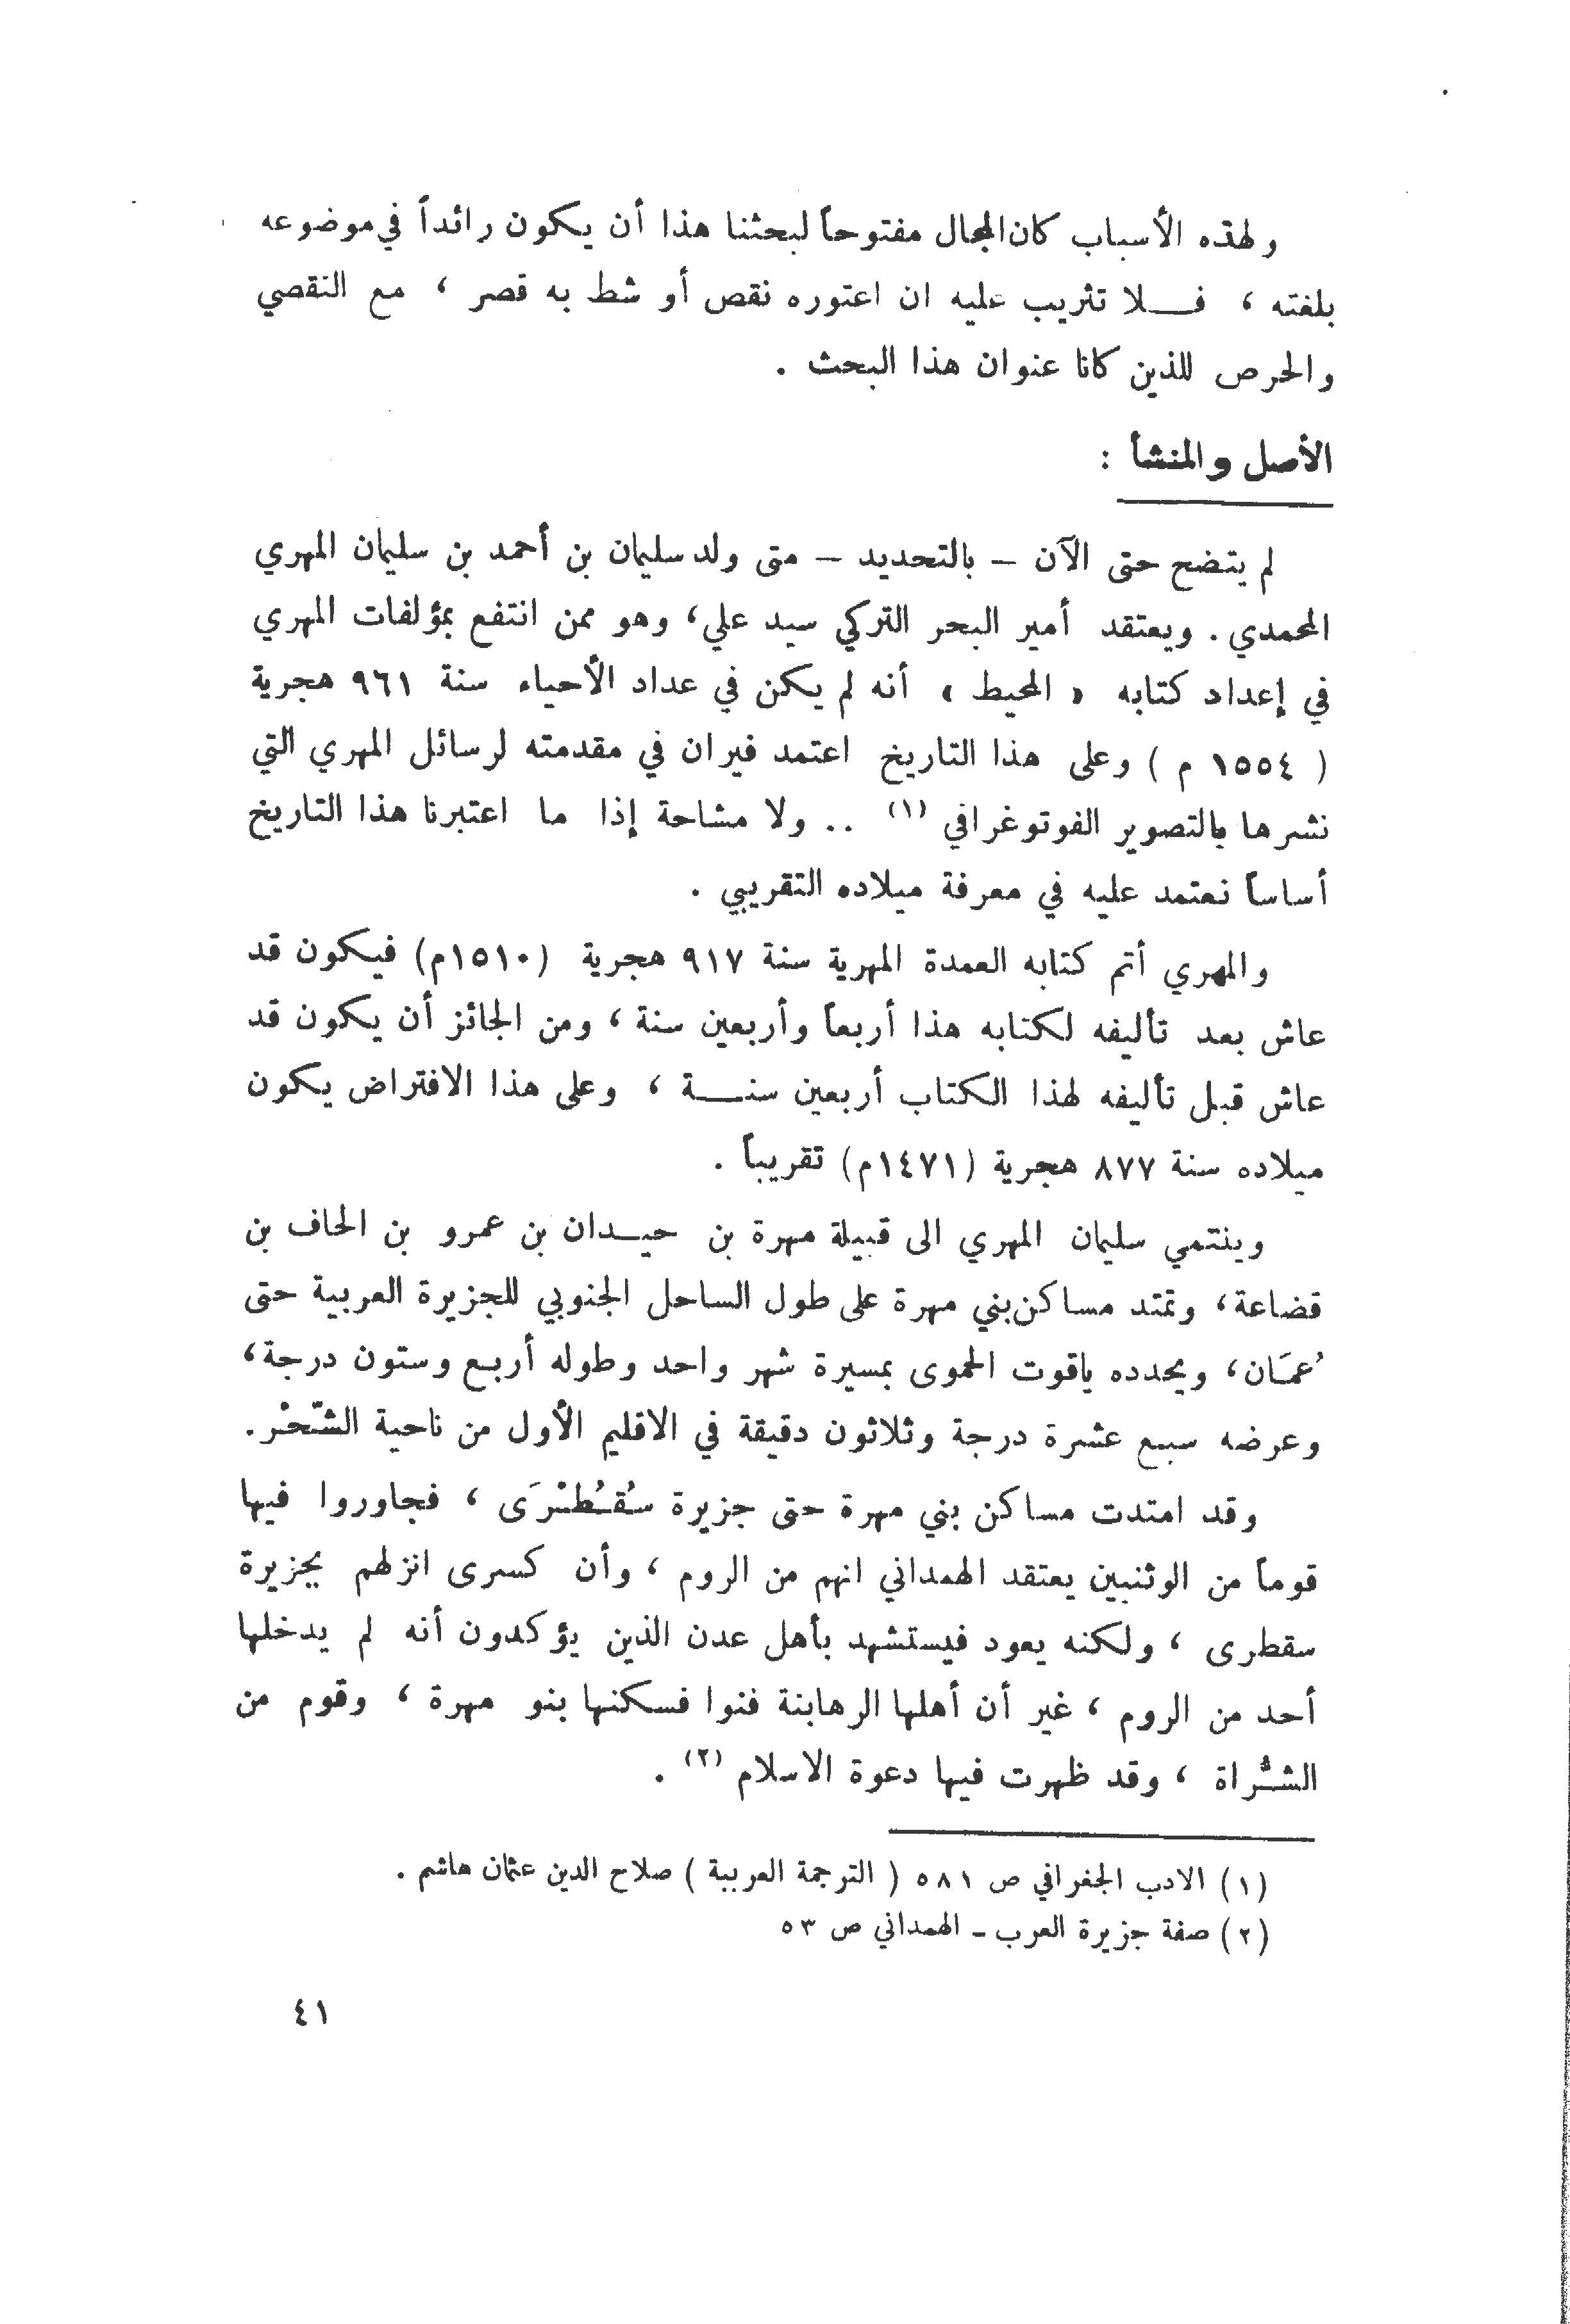 ولهذه الأسباب كان المجال مفتوحاً لبحثنا هذا أن يكون رائداً في موضوعه
بلغته ، فـــلا تثريب عليه ان اعتوره نقص أو شط به قصر ، مع التقصي
والحرص للذين كانا عنوان هذا البحث .
الأصل والمنشأ :
لم يتضح حتى الآن – بالتحديد – متى ولد سليمان بن أحمد بن سليمان المهري
المحمدي . ويعتقد أمير البحر التركي سيد علي، وهو ممن انتفع بمؤلفات المهري
في إعداد كتابه « المحيط » أنه لم يكن في عداد الأحياء سنة ٩٦١ هجرية
( ١٥٥٤ م ) وعلى هذا التاريخ اعتمد فيران في مقدمته لرسائل المهري التي
نشرها بالتصوير الفوتوغرافي (١) .. ولا مشاحة إذا ما اعتبرنا هذا التاريخ
أساساً نعتمد عليه في معرفة ميلاده التقريبي .
والمهري أتم كتابه العمدة المهرية سنة ٩١٧ هجرية (١٥١٠م) فيكون قد
عاش بعد تأليفه لكتابه هذا أربعاً وأربعين سنة ، ومن الجائز أن يكون قد
عاش قبل تأليفه لهذا الكتاب أربعين سنـــة ، وعلى هذا الافتراض يكون
ميلاده سنة ٨٧٧ هجرية (١٤٧١م) تقريباً .
وينتمي سليمان المهري الى قبيلة مهرة بن حيـدان بن عمرو بن الحاف بن
قضاعة، وتمتد مساكن بني مهرة على طول الساحل الجنوبي للجزيرة العربية حتى
عُمَان، ويحدده ياقوت الحموى بمسيرة شهر واحد وطوله أربع وستون درجة،
وعرضه سبع عشرة درجة وثلاثون دقيقة في الاقليم الأول من ناحية الشّحْر.
وقد امتدت مساكن بني مهرة حتى جزيرة سُقُطْرَى ، فجاوروا فيها
قوماً من الوثنيين يعتقد الهمداني انهم من الروم ، وأن كسرى انزلهم بجزيرة
سقطرى ، ولكنه يعود فيستشهد بأهل عدن الذين يؤكدون أنه لم يدخلها
أحد من الروم ، غير أن أهلها الرهابنة فنوا فسكنها بنو مهرة ، وقوم من
الشُّراة ، وقد ظهرت فيها دعوة الاسلام (٢) .
(١) الادب الجغرافي ص ٥٨١ ( الترجمة العربية ) صلاح الدين عثمان هاشم .
(٢) صفة جزيرة العرب - الهمداني ص ٥٣
٤١